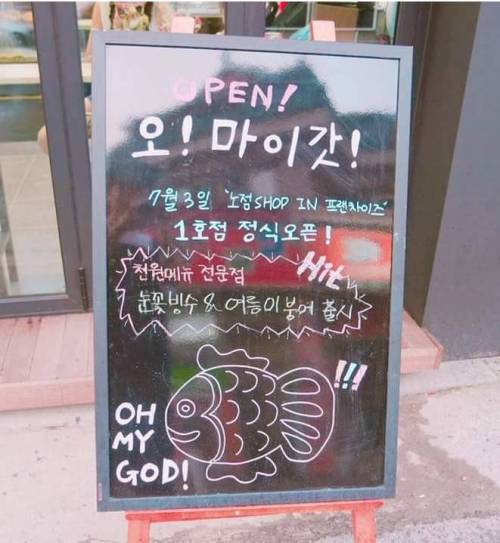 OPEN!
오! 마이갓!
7월 3일 "노점SHOP IN 프랜차이즈"
1호점 정식오픈!
Hit
천원메뉴 전문점
눈꽃빙수 & 여름이붕어 출시
!!!
OH
MY
GOD!